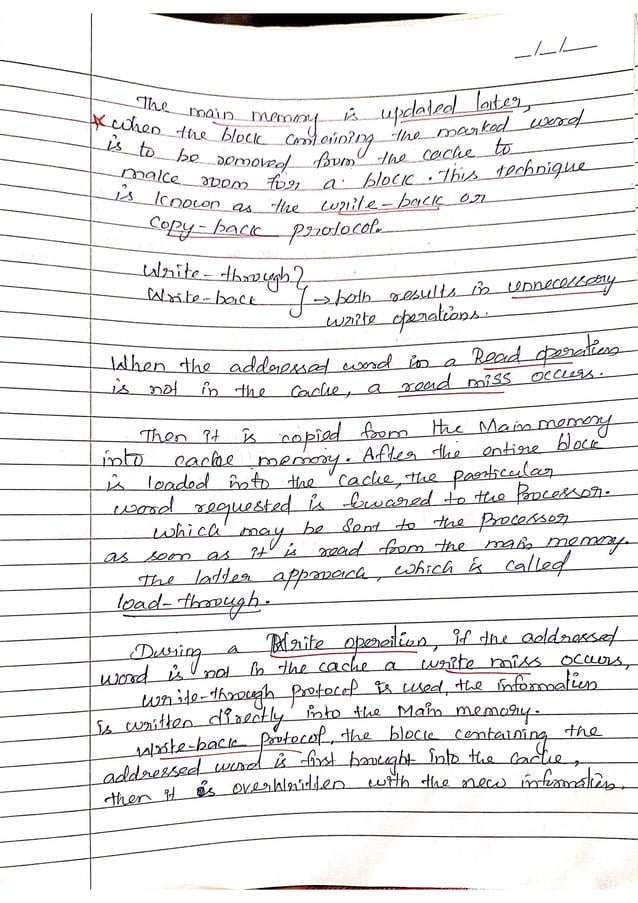 _/_/_
The main memory is updated later,
* when the block containing the marked word
is to be removed from the cache to
make room for a block. This technique
is known as the write-back or
Copy-back protocol.
Write-through }
Write-back } → both results in unnecessary
write operations.
When the addressed word in a Read operation
is not in the cache, a read miss occurs.
Then it is copied from the Main memory
into cache memory. After the entire block
is loaded into the cache, the particular
word requested is fowared to the Processor.
which may be sent to the Processor
as soon as it is read from the main memory.
The latter approach, which is called
load-through.
During a Write operation, if the addressed
word is not in the cache a write miss occurs,
write-through protocol is used, the information
is written directly into the Main memory.
Write-back protocol, the block containing the
addressed word is first brought into the cache,
then it is overwridden with the new information.